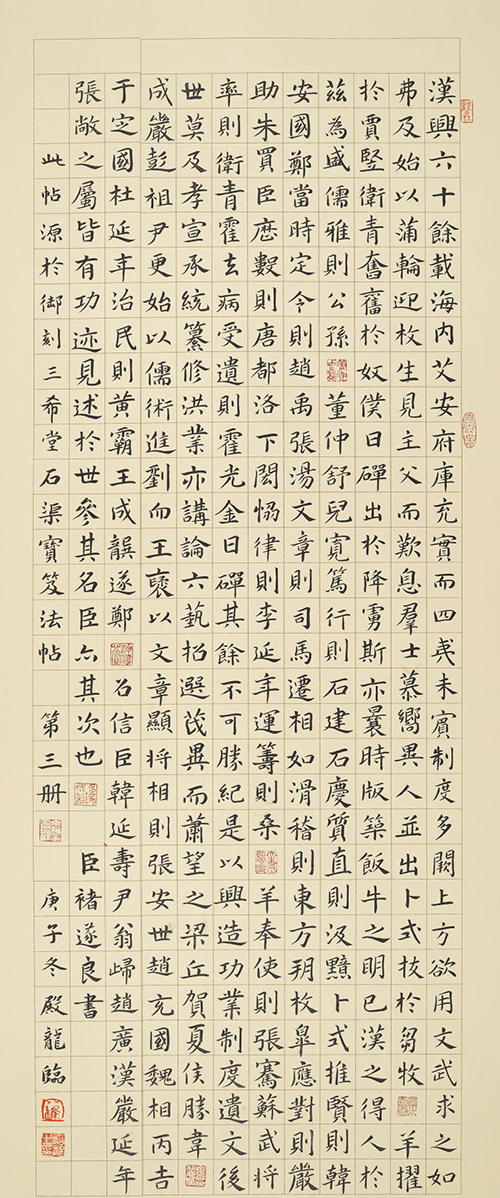 漢興六十餘載海内艾安府庫充實而四夷未賓制度多闕上方欲用文武求之如
弗及始以蒲輪迎枚生見主父而歎息羣士慕嚮異人並出卜式拔於芻牧羊擢
於賈豎衛青奮舊於奴僕日磾出於降虜斯亦曩時版築飯牛之明已漢之得人於
茲為盛儒雅則公孫董仲舒兒寬篤行則石建石慶質直則汲黯卜式推賢則韓
安國鄭當時定令則趙禹張湯文章則司馬遷相如滑稽則東方朔枚皐應對則嚴
助朱買臣厯數則唐都洛下閎愶律則李延年運籌則桑羊奉使則張騫蘇武將
率則衛青霍去病受遺則霍光金日磾其餘不可勝紀是以興造功業制度遺文後
世莫及孝宣承統纂修洪業亦講論六藝招選茂異而蕭望之梁丘賀夏侯勝韋
成嚴彭祖尹更始以儒術進劉向王襃以文章顯將相則張安世趙充國魏相丙吉
于定國杜延年治民則黃霸王成龔遂鄭召信臣韓延壽尹翁歸趙廣漢嚴延年
張敞之屬皆有功迹見述於世參其名臣亦其次也 臣褚遂良書
此帖源於御刻三希堂石渠寶笈法帖 第三冊 庚子冬殿龍臨